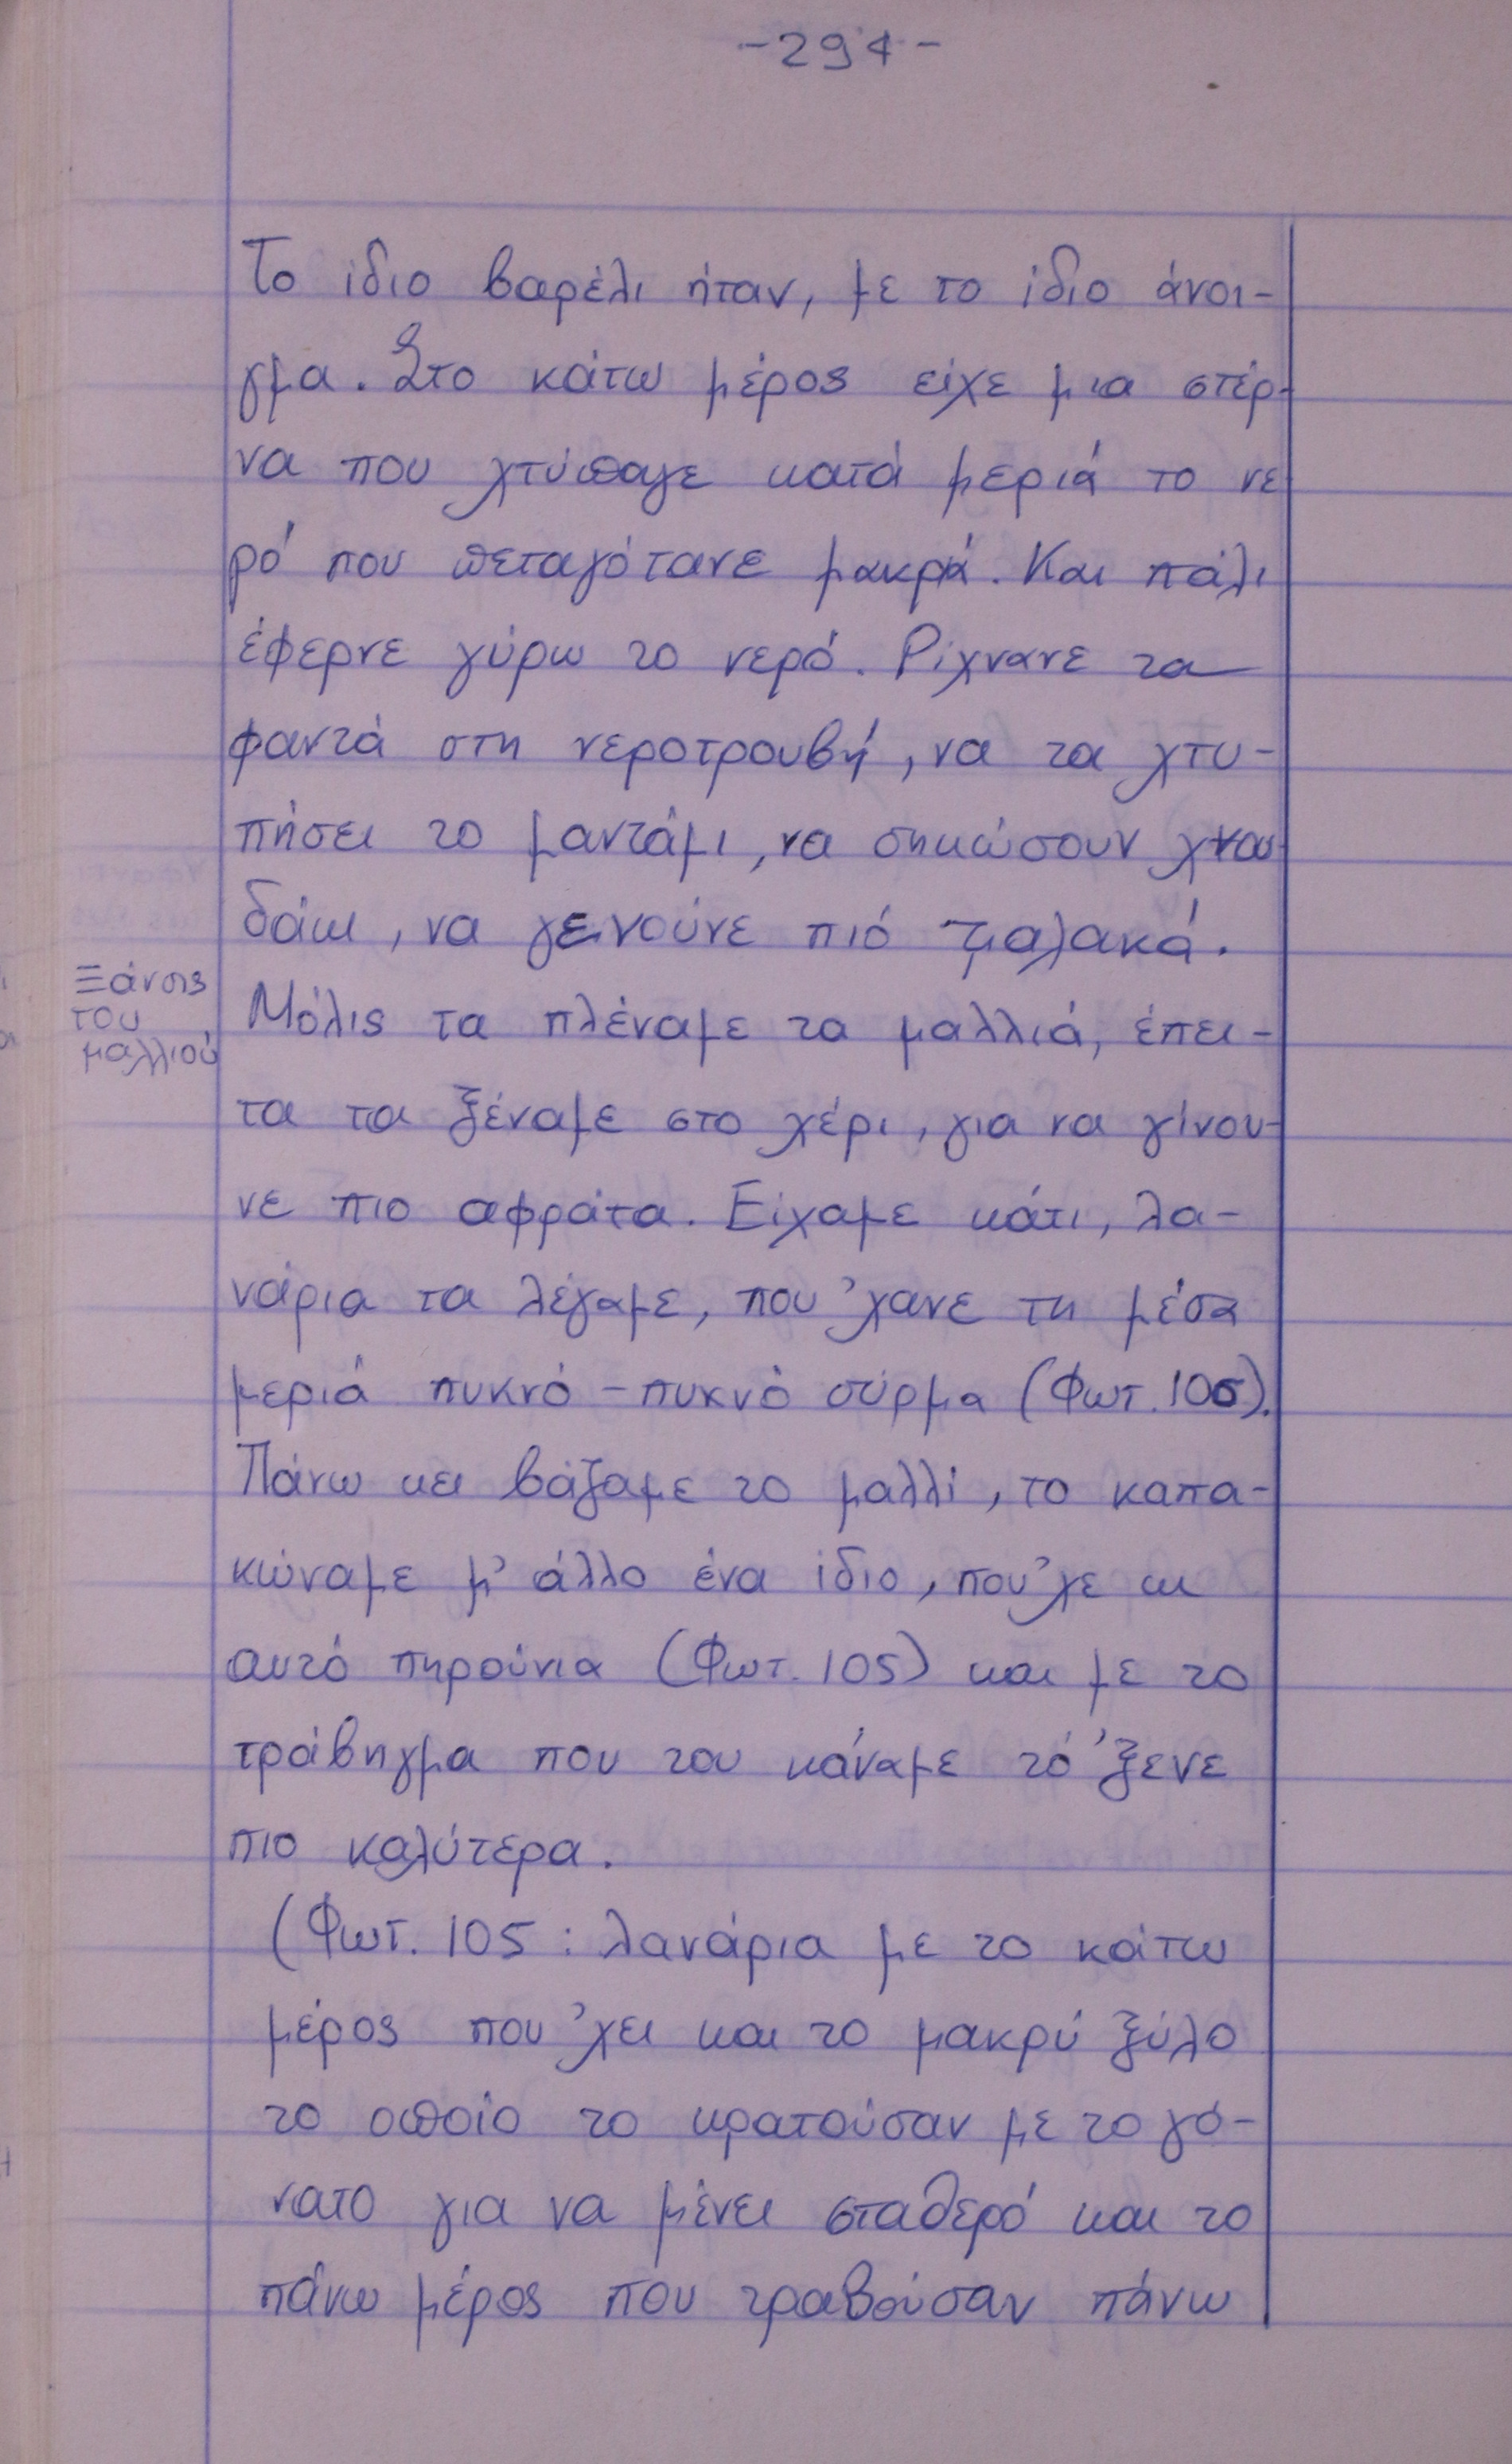 -294-
Το ίδιο βαρέλι ήταν, με το ίδιο άνοι-
γμα. Στο κάτω μέρος είχε μια στέρ-
να που χτύπαγε κατά μεριά το νε
ρό που πεταγότανε μακρά. Και πάλι
έφερνε γύρω το νερό. Ρίχνανε τα
φαντά στη νεροτρουβή, να τα χτυ-
πήσει το μαντάμι, να σηκώσουν χνου
δάκι, να γενούνε πιό μαλακά.
Ξάνσις
του
μαλλιού
Μόλις τα πλέναμε τα μαλλιά, έπει-
τα τα ξέναμε στο χέρι, για να γίνου-
νε πιο αφράτα. Είχαμε κάτι, λα-
νάρια τα λέγαμε, που 'χανε τη μέσα
μεριά πυκνό-πυκνό σύρμα (Φωτ. 105).
Πάνω κει βάζαμε το μαλλί, το καπα-
κώναμε μ' άλλο ένα ίδιο, που 'χε κι
αυτό πηρούνια (Φωτ. 105) και με το
τράβηγμα που του κάναμε τό 'ξενε
πιο καλύτερα.
(Φωτ. 105 : λανάρια με το κάτω
μέρος που 'χει και το μακρύ ξύλο
το οποίο το κρατούσαν με το γό-
νατο για να μένει σταθερό και το
πάνω μέρος που τραβούσαν πάνω